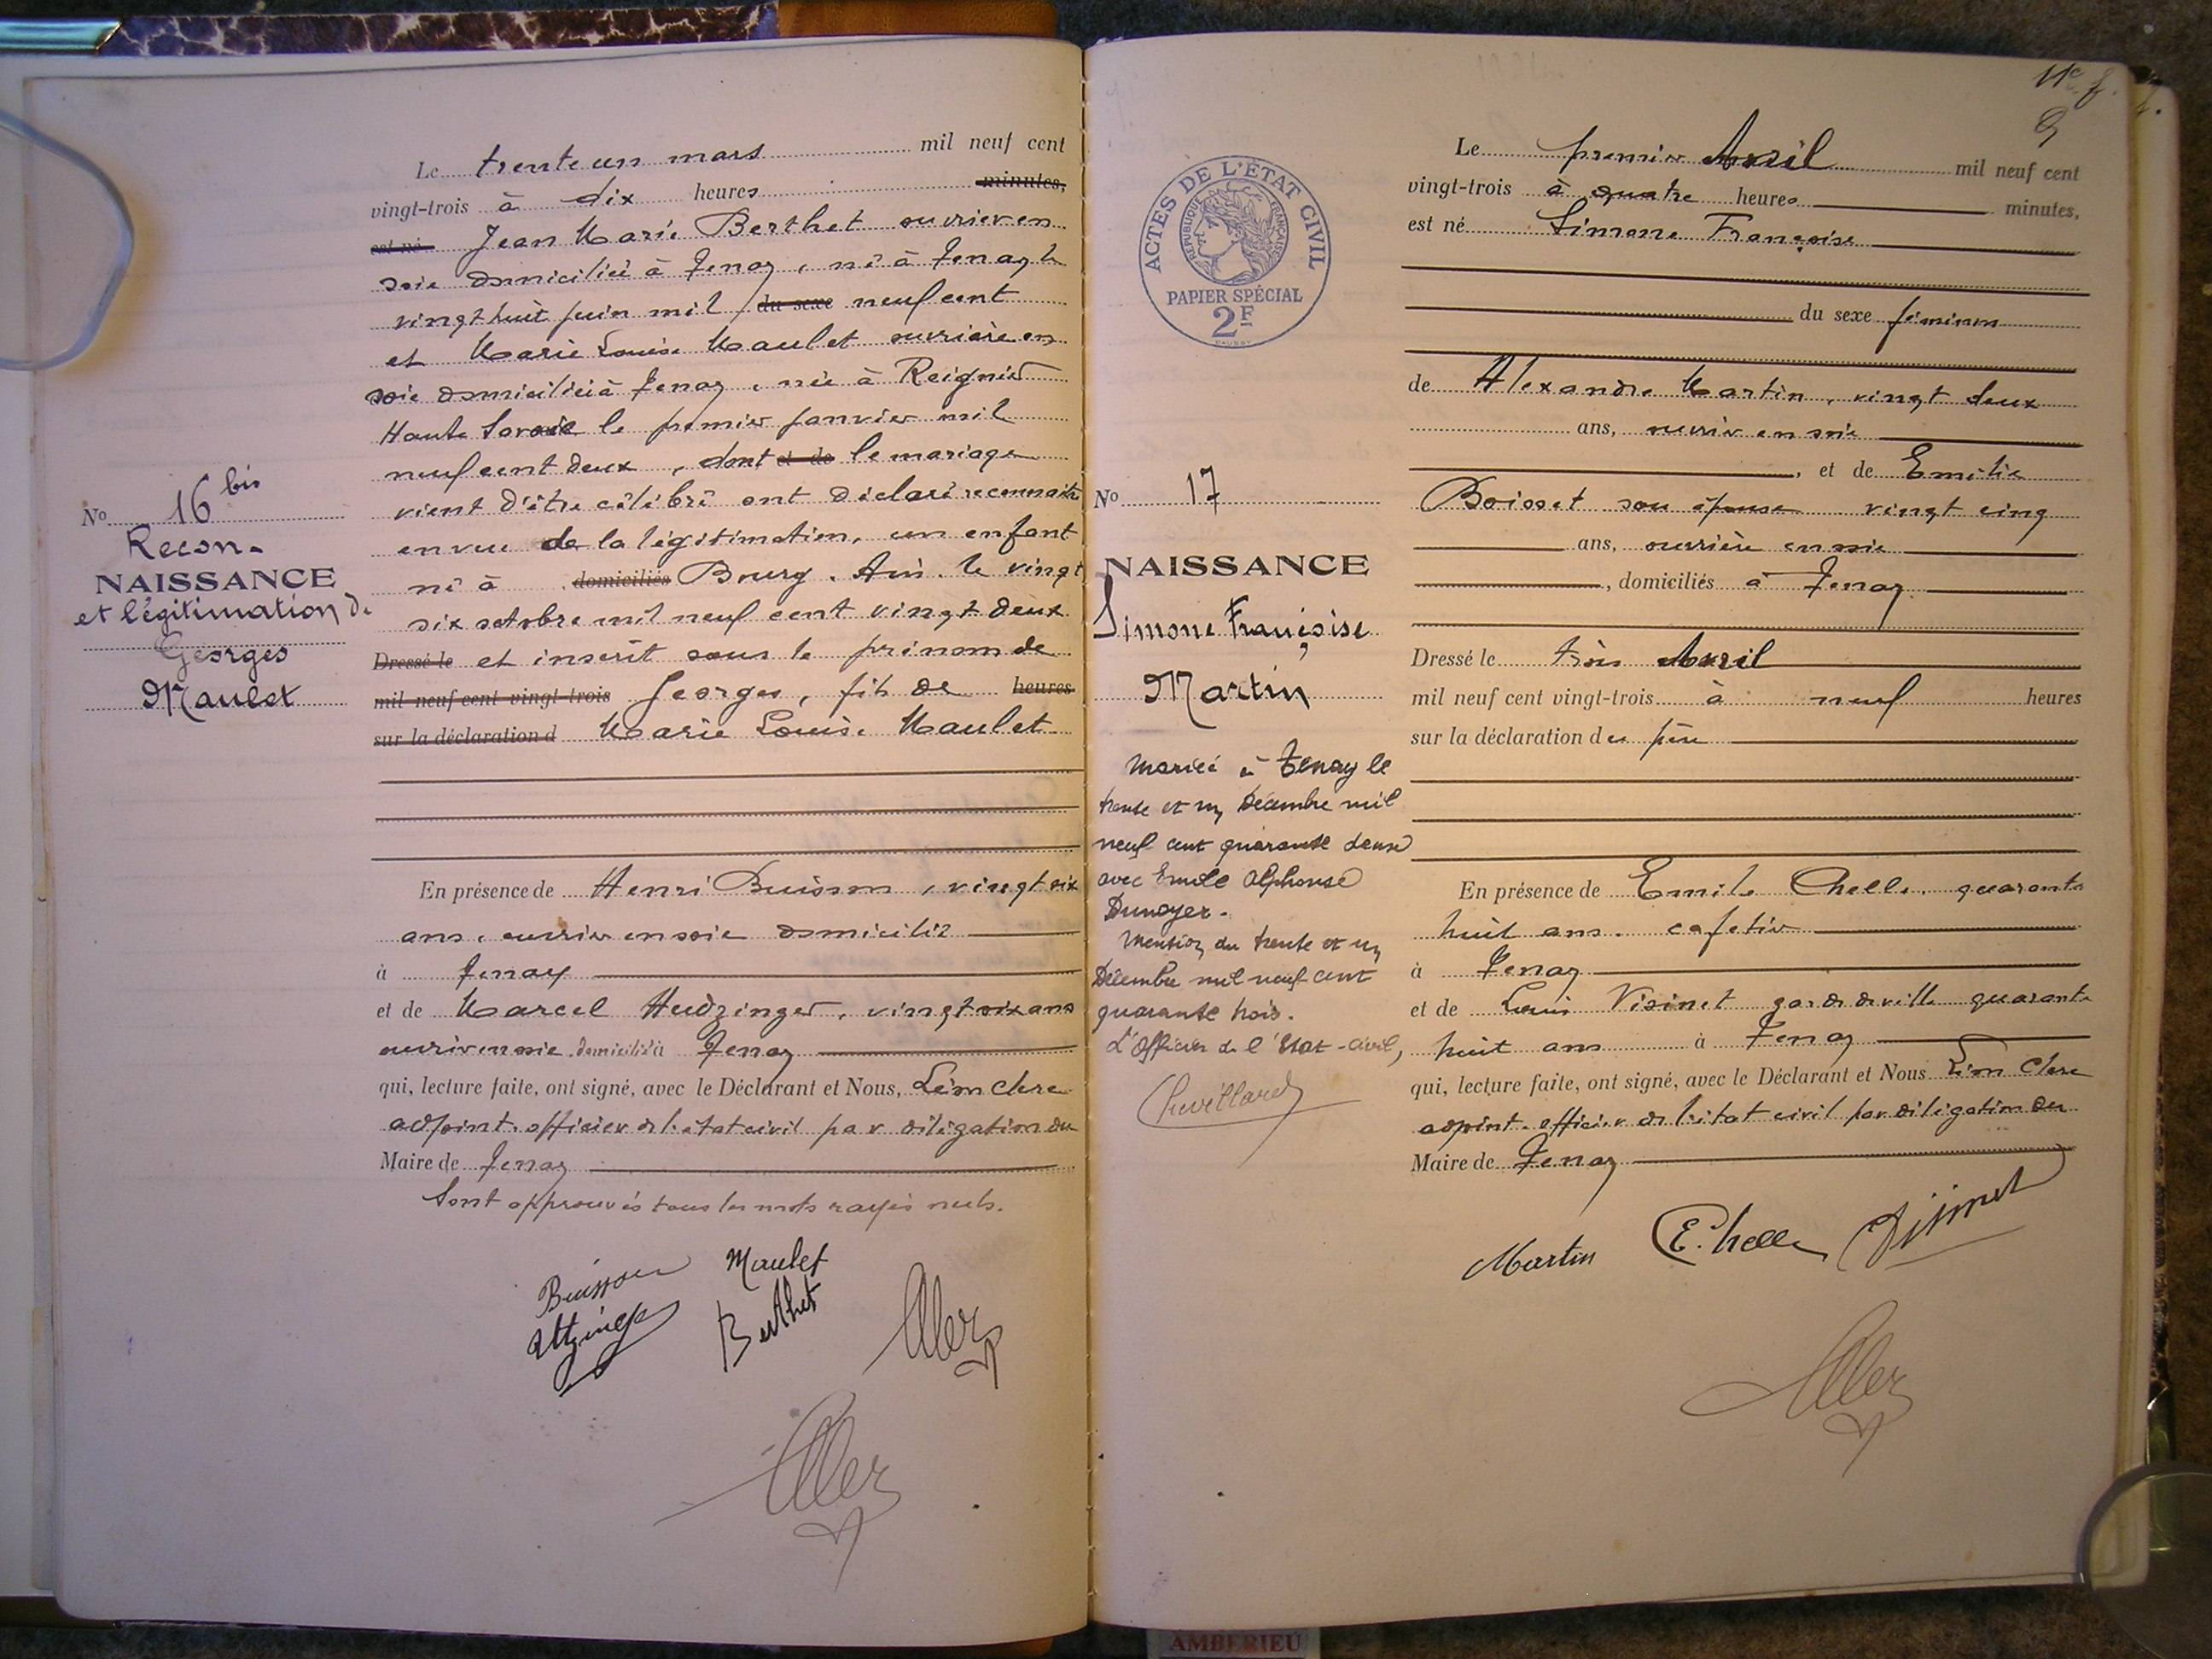 Le trente un mars mil neuf cent
vingt-trois à dix heures minutes,
est né Jean Marie Berthet ouvrier en
soie domicilié à Tenay, né à Tenay le
vingt huit juin mil du sexe neuf cent
et Marie Louise Maulet ouvrière en
soie domiciliée à Tenay, née à Reignier
Haute Savoie le premier janvier mil
neuf cent deux, dont et de le mariage
vient d'être célébré ont déclaré reconnaitre
en vue de la légitimation, un enfant
né à domiciliés Bourg. Ain. le vingt
six octobre mil neuf cent vingt deux
Dressé le et inscrit sous le prénom de
mil neuf cent vingt-trois Georges, fils de heures
sur la déclaration d Marie Louise Maulet
No 16 bis
Recon-
NAISSANCE
et légitimation de
Georges
Maulet
En présence de Henri Buisson, vingt six
ans, ouvrier en soie domicilié
à Tenay
et de Marcel vingt six ans
ouvrier en soie domicilié à Tenay
qui, lecture faite, ont signé, avec le Déclarant et Nous, Léon Clerc
adjoint. officier de l'état civil par délégation du
Maire de Tenay
Sont approuvés tous les mots rayés nuls.
Buisson Maulet
Berthet
11e f.
9
ACTES DE L'ÉTAT CIVIL
RÉPUBLIQUE FRANÇAISE
PAPIER SPÉCIAL
2F
No 17
NAISSANCE
Simone Françoise
Martin
Mariée à Tenay le
trente et un Décembre mil
neuf cent quarante deux
avec Emile Alphonse
Dunoyer.
Mention du trente et un
Décembre mil neuf cent
quarante trois.
L'Officier de l'Etat-civil,
Cuvillard
Le premier Avril mil neuf cent
vingt-trois à quatre heures minutes,
est né Simone Françoise
du sexe féminin
de Alexandre Martin, vingt deux
ans, ouvrier en soie
, et de Emilie
Boisset son épouse vingt cinq
ans, ouvrière en soie
, domiciliés à Tenay
Dressé le trois Avril
mil neuf cent vingt-trois à neuf heures
sur la déclaration du père
En présence de Emile Chelle, quarante
huit ans. cafetier
à Tenay
et de Louis Visinet garde de ville quarante
huit ans à Tenay
qui, lecture faite, ont signé, avec le Déclarant et Nous Léon Clerc
adjoint. officier de l'état civil par délégation du
Maire de Tenay
Martin E. Chelle Visinet
AMBERIEU